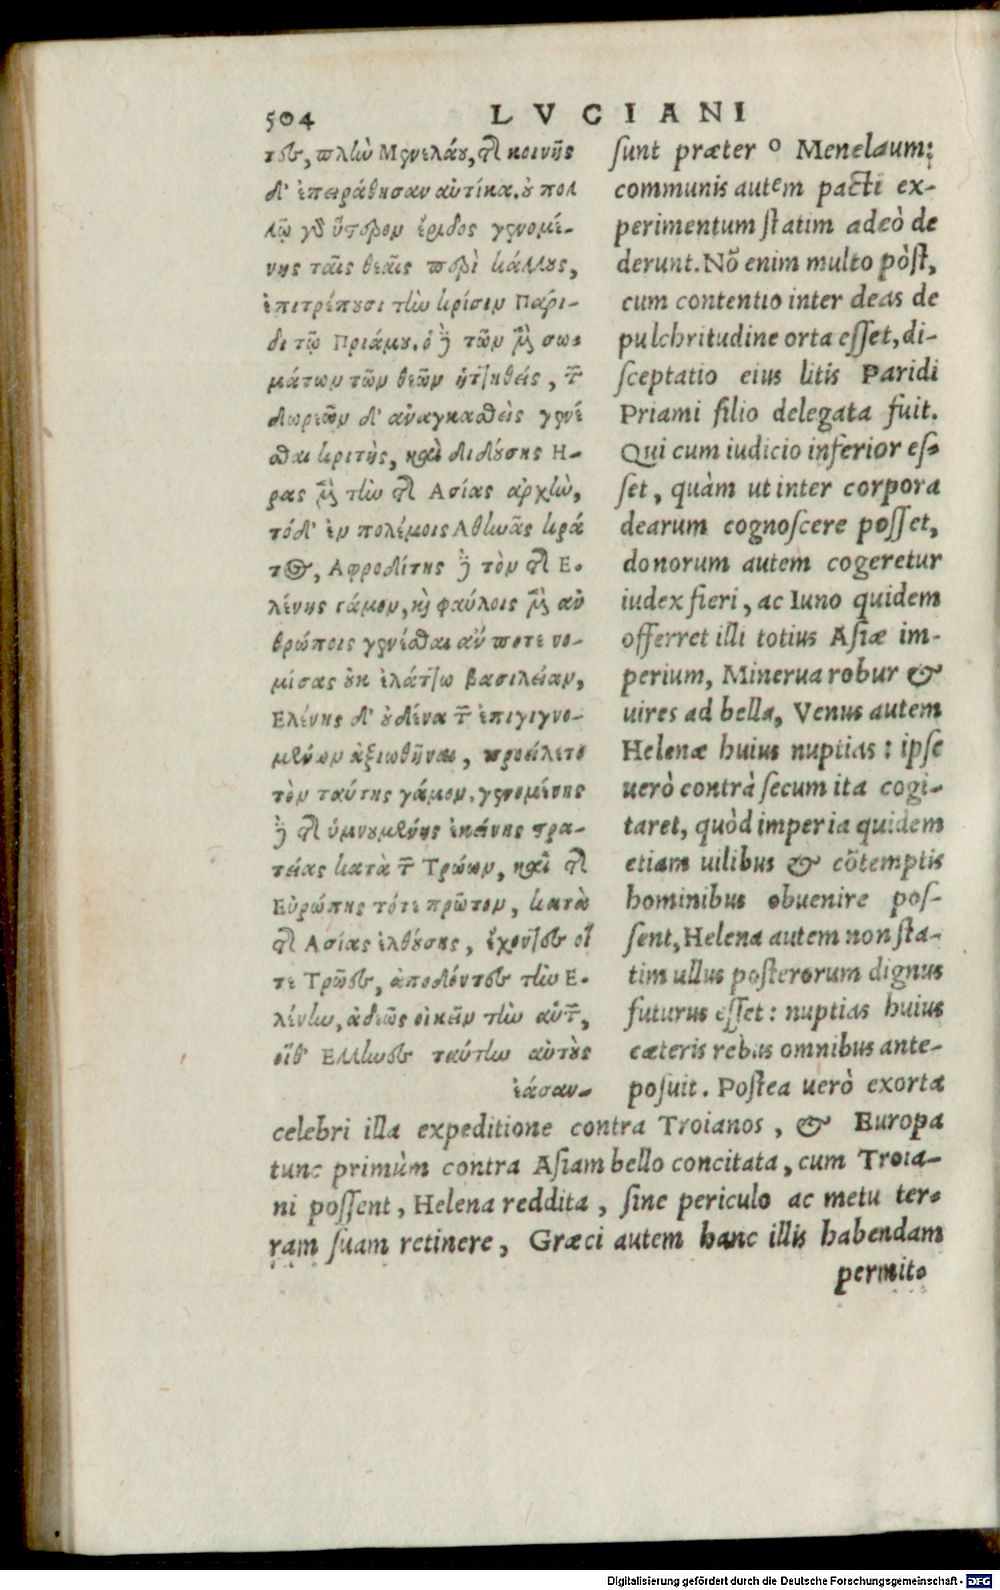 504 LVCIANI
τες, πλὴν Μενελάου, τῆς κοινῆς
δ' ἐπειράθησαν αὐτίκα. οὐ πολ
λῷ γὰρ ὕστερον ἔριδος γενομέ-
νης ταῖς θεαῖς περὶ κάλλους,
ἐπιτρέπουσι τὴν κρίσιν Πάρι-
δι τῷ Πριάμου. ὁ δὲ τῶν μὲν σω-
μάτων τῶν θεῶν ἡττηθείς, τῶν
δωρεῶν δ' ἀναγκασθεὶς γενέ
σθαι κριτὴς, καὶ διδούσης Η-
ρας μὲν τὴν τῆς Ασίας ἀρχὴν,
τό δ' ἐν πολέμοις Αθηνᾶς κρά
τος, Αφροδίτης δὲ τὸν τῆς Ε-
λένης γάμον, καὶ φαύλοις μὲν ἀν
θρώποις γενέσθαι ἄν ποτε νο-
μίσας οὐκ ἐλάττω βασιλείαν,
Ελένης δ' οὐδένα τῶν ἐπιγιγνο-
μένων ἀξιωθῆναι, προείλετο
τὸν ταύτης γάμον. γενομένης
δὲ τῆς ὑμνουμένης ἐκείνης στρα-
τείας κατὰ τῶν Τρώων, καὶ τῆς
Εὐρώπης τότε πρῶτον, κατὰ
τῆς Ασίας ἐλθούσης, ἔχοντες οἵ
τε Τρῶες, ἀποδόντες τὴν Ε-
λένην, ἀδεῶς οἰκεῖν τὴν αὑτῶν,
οἵθ' Ελληνες ταύτην αὐτοὺς
ἐάσαν-
sunt præter o Menelaum:
communis autem pacti ex-
perimentum statim adeò de
derunt. Nõ enim multo pòst,
cum contentio inter deas de
pulchritudine orta esset, di-
sceptatio eius litis Paridi
Priami filio delegata fuit.
Qui cum iudicio inferior es-
set, quàm ut inter corpora
dearum cognoscere posset,
donorum autem cogeretur
iudex fieri, ac Iuno quidem
offerret illi totius Asiæ im-
perium, Minerua robur &
uires ad bella, Venus autem
Helenæ huius nuptias: ipse
uerò contrà secum ita cogi-
taret, quòd imperia quidem
etiam uilibus & cõtemptis
hominibus obuenire pos-
sent, Helena autem non sta-
tim ullus posterorum dignus
futurus esset: nuptias huius
cæteris rebus omnibus ante-
posuit. Postea uerò exorta
celebri illa expeditione contra Troianos, & Europa
tunc primùm contra Asiam bello concitata, cum Troia-
ni possent, Helena reddita, sine periculo ac metu ter-
ram suam retinere, Græci autem hanc illis habendam
permit-
Digitalisierung gefördert durch die Deutsche Forschungsgemeinschaft - DFG